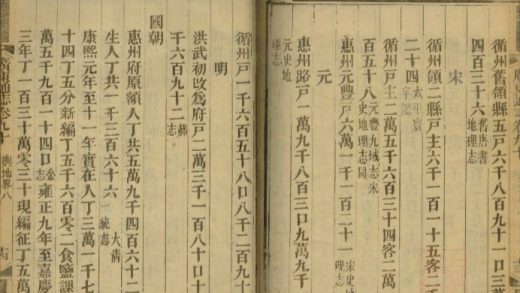 循州舊領縣五戶六千八百九十一口三萬
四百三十六 舊唐書地理志
宋
循州領二縣戶主六千一百一十五客二
二十四 太平寰宇記
循州戶主二萬五千六百三十四客二萬
百五十八 元豐九域志宋史地理志同
惠州元豐戶六萬一千一百二十一 宋史地理志
元
惠州路戶一萬九千八百三口九萬九千
元史地理志
循州戶一千六百五十八口八千二百九十
明
洪武初改為府戶二萬三千一百八十口十
千六百九十二 郝志
國朝
惠州府原額人丁共五萬九千四百六十二
生人丁共一千三百六十六 大清一統志
康熙元年至十一年實在人丁三萬一千七
十四丁五分新編丁五千六百零二食鹽課
萬五千九百一十四口 金志 雍正九年至嘉慶
三年丁一百三十萬零三十現編征丁五萬
廣東通志卷九十 輿地略八